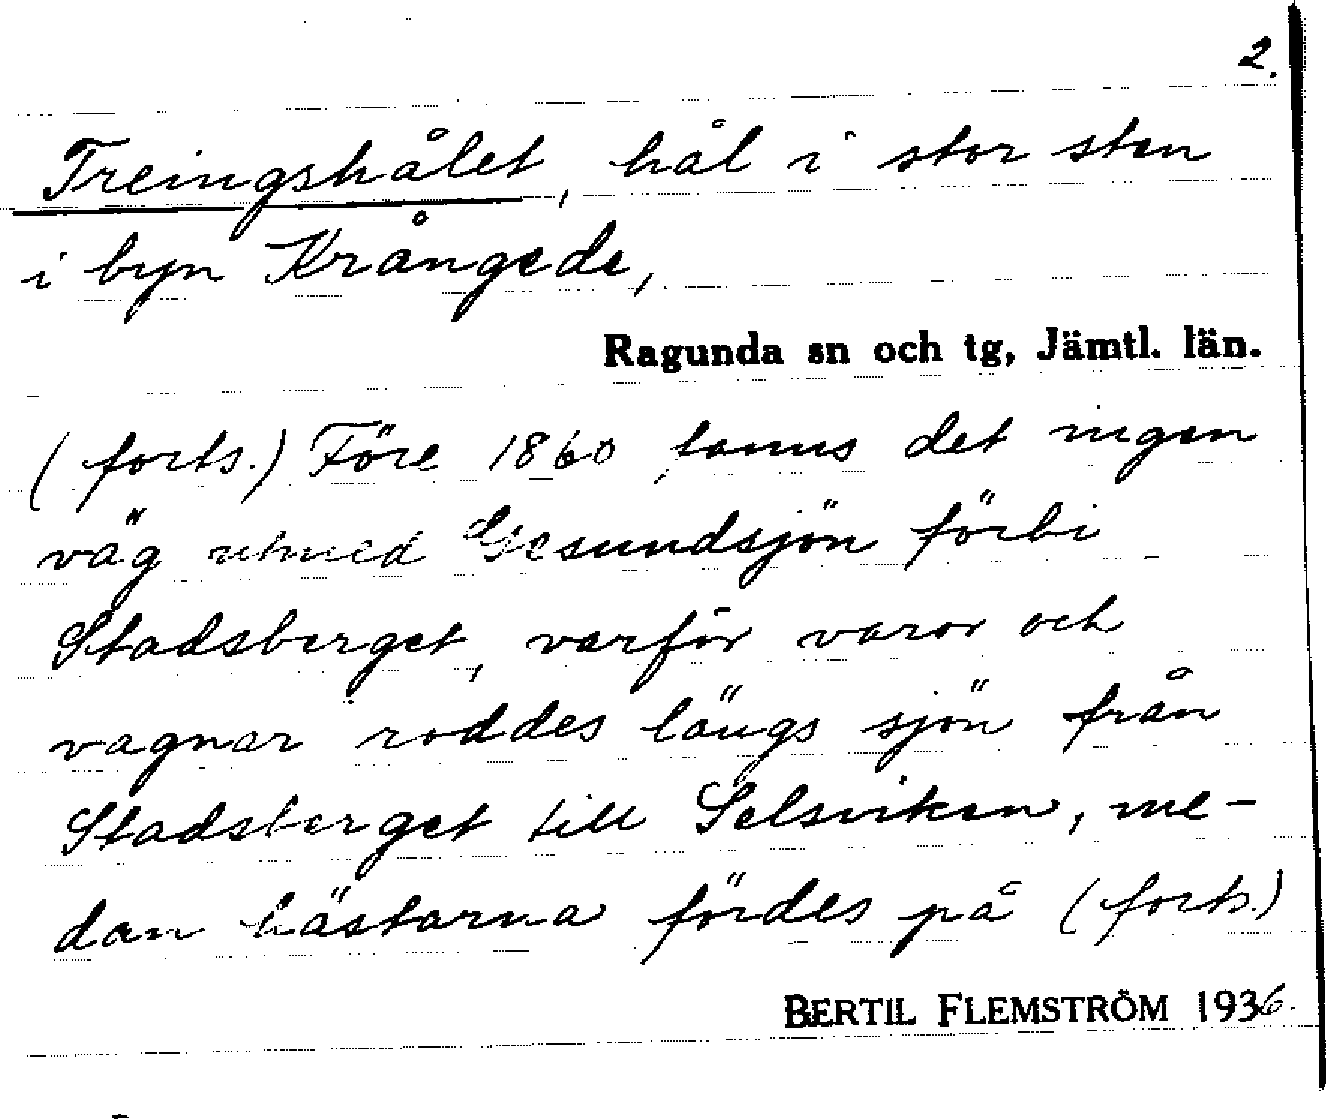 2.
Treingshålet, hål i stor sten
i byn Krångede,
Ragunda sn och tg, Jämtl. län.
(forts.) Före 1860 fanns det ingen
väg utmed Gesundsjön förbi
Stadsberget, varför varor och
vagnar roddes längs sjön från
Stadsberget till Selsviken, me-
dan hästarna fördes på (forts.)
BERTIL FLEMSTRÖM 1936.